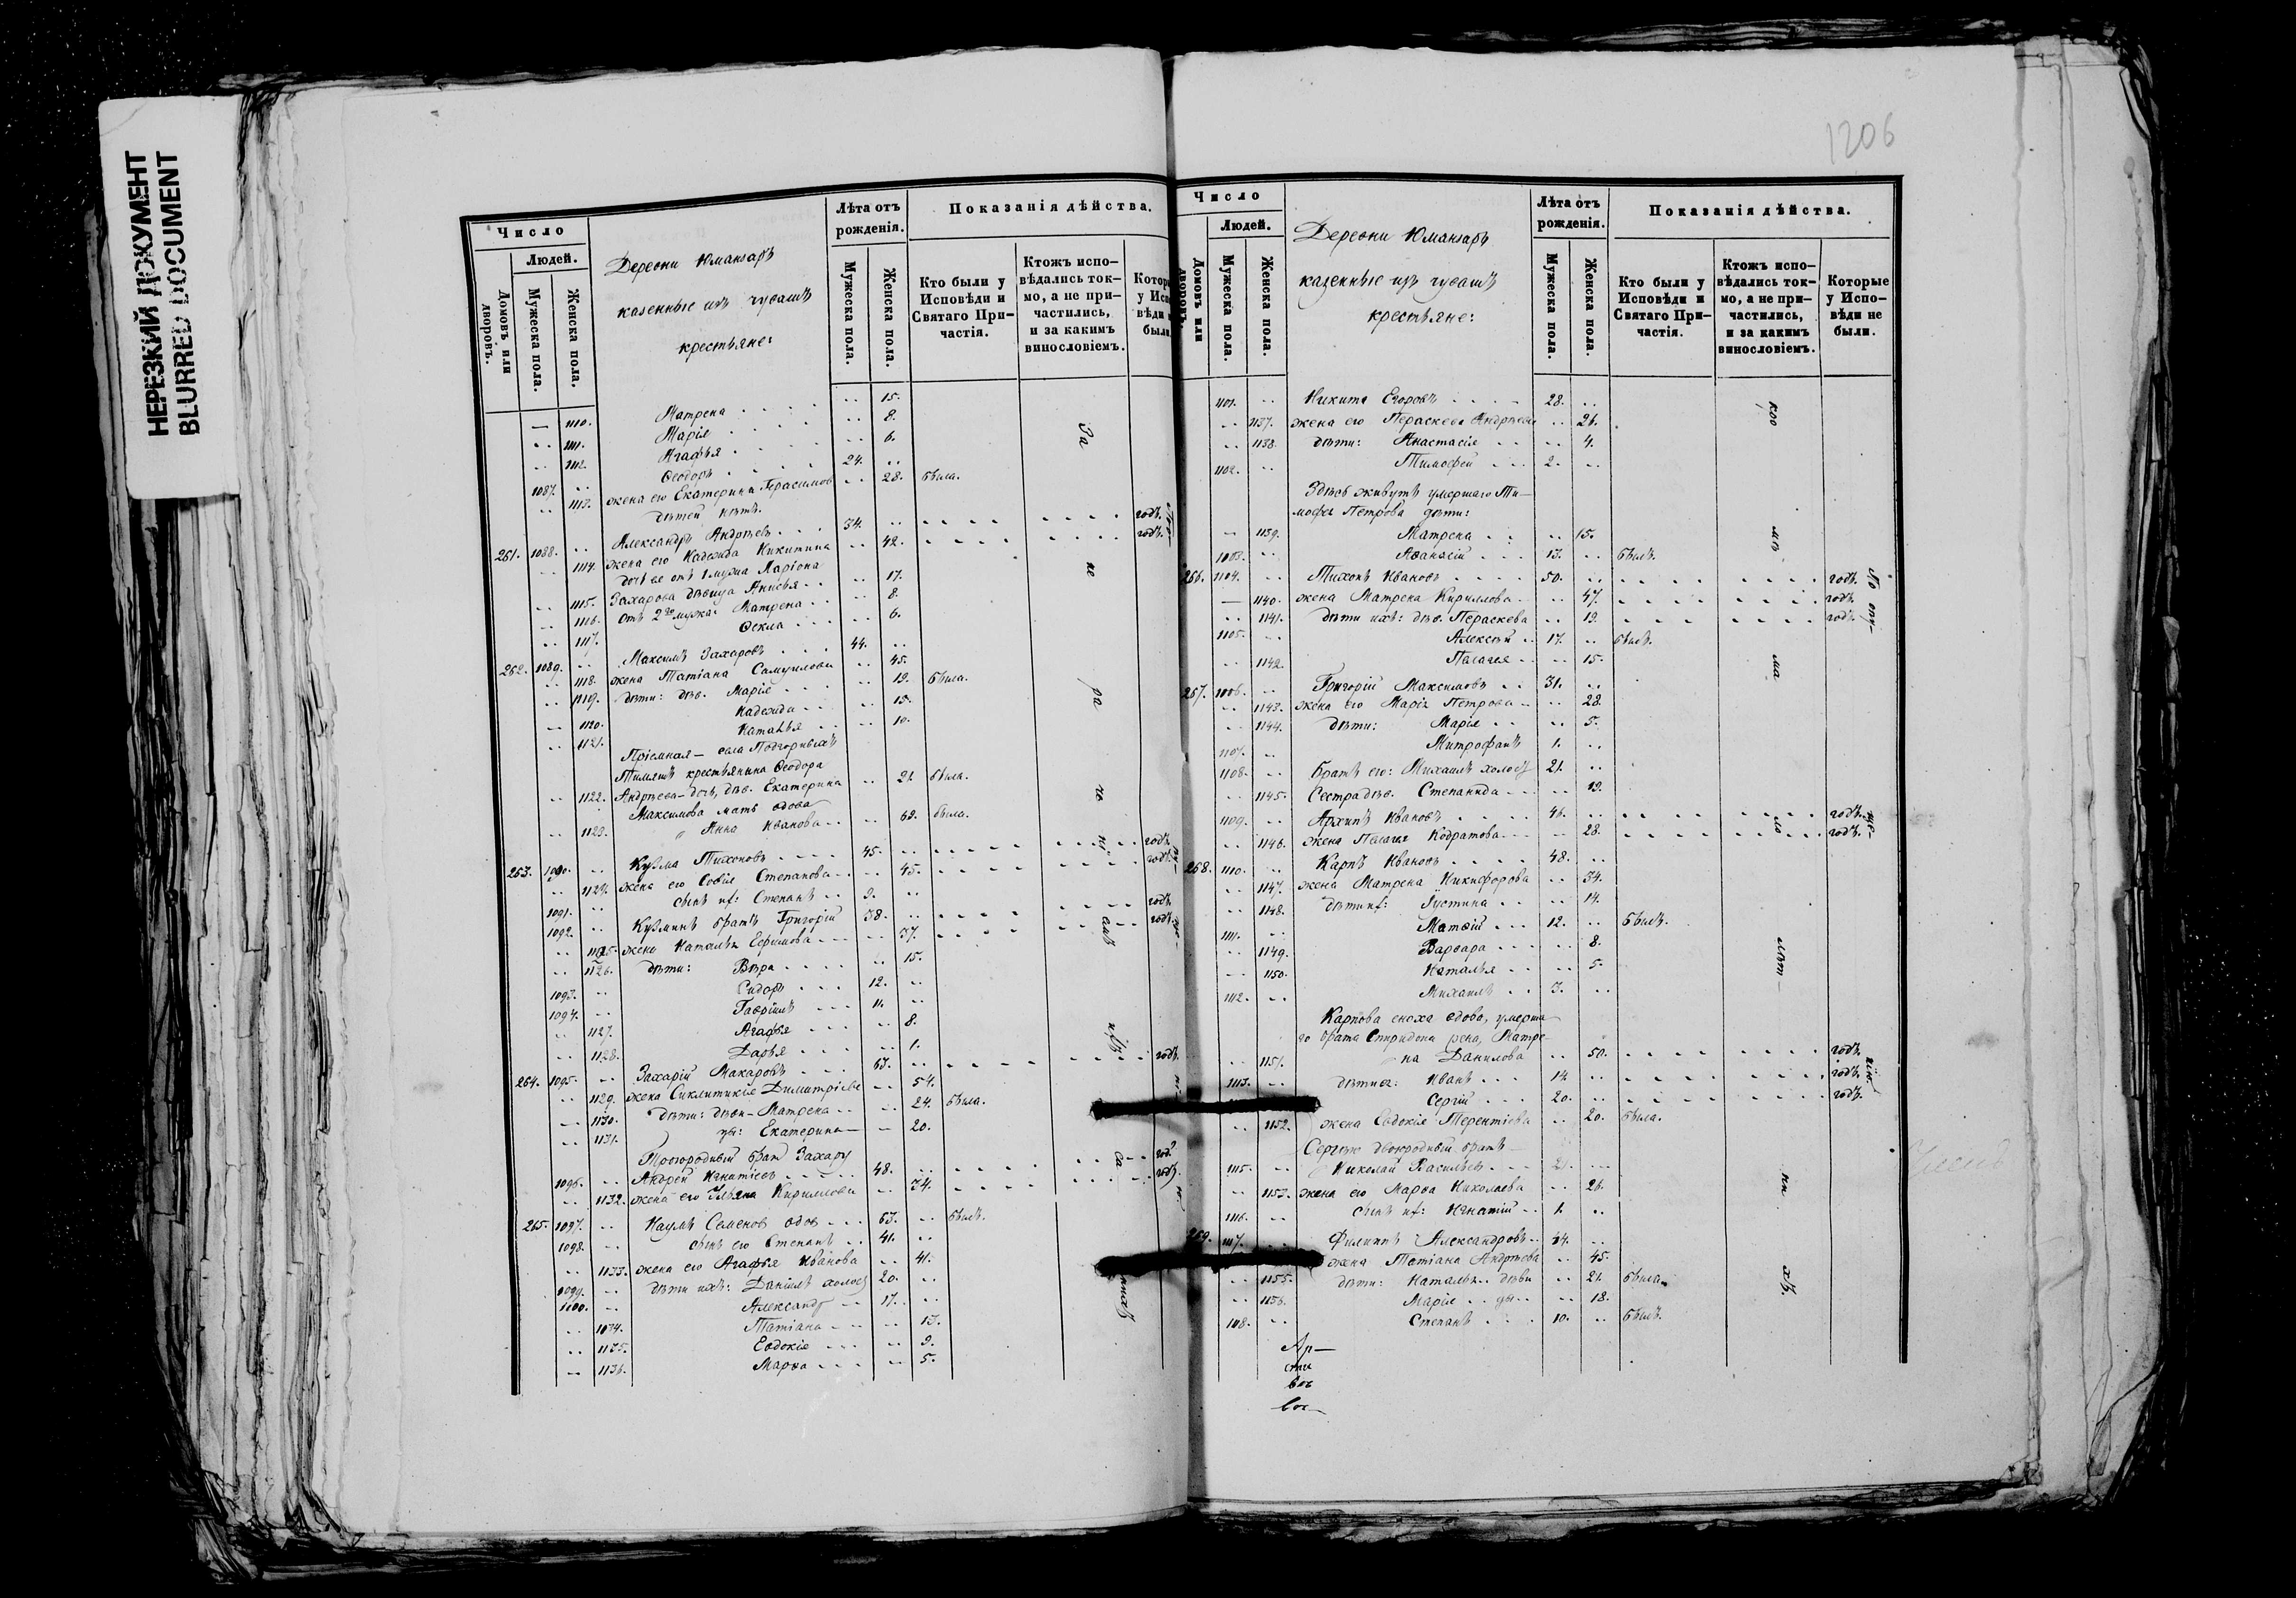 НЕРЕЗКИЙ ДОКУМЕНТ
BLURRED DOCUMENT
Число
Людей.
Домовъ или дворовъ.
Мужеска пола.
Женска пола.
Деревни Юманзаръ
казенные изъ чувашъ
крестьяне:
Лѣта отъ рожденія.
Мужеска пола.
Женска пола.
Показанія дѣйства.
Кто были у Исповѣди и Святаго Причастія.
Ктожъ исповѣдались токмо, а не причастились, и за какимъ винословіемъ.
1110. Матрена 15.
1111. Марія 8.
1112. Агафья 6.
1087. Ѳеодоръ 24.
1113. жена его Екатерина Герасимов 28. была.
дѣтей нѣтъ.
261. 1088. Александръ Андрѣевъ 34. годъ.
1114. жена его Надежда Никитина 42. годъ.
дочь ее отъ 1 мужа Ларіона
1115. Захарова дѣвица Анисья 17.
1116. отъ 2го мужа: Матрена 8.
1117. Ѳекла 6.
262. 1089. Максимъ Захаровъ 44.
1118. жена Татіана Самуилова 45.
1119. дѣти: дѣв. Марія 19. была.
1120. Надежда 15.
1121. Наталья 10.
Пріемная — села Подгорныхъ
Тимяшъ крестьянина Ѳеодора
1122. Андрѣева — дочь, дѣв. Екатерина 21. была.
Максимова мать вдова
1123. Анна Иванова 62. была.
263. 1090. Кузма Тихоновъ 45. годъ.
1124. жена его Софія Степанова 45. годъ.
1091. сынъ их: Степанъ 9.
1092. Кузминъ братъ Григорій 38. годъ.
1125. жена Наталья Ефимова 37. годъ.
1126. дѣти: Вѣра 15.
1093. Сидоръ 12.
1094. Гавріилъ 11.
1127. Агафья 8.
1128. Дарья 1.
264. 1095. Захарій Макаровъ 63. годъ.
1129. жена Сиклитикія Димитріева 54.
1130. дѣти: дѣви- Матрена 24. была.
1131. цы: Екатерина 20.
Троюродный брат Захару
1096. Андрей Игнатіевъ 48. год.
1132. жена его Ульяна Кириллова 34. годъ.
265. 1097. Наумъ Семеновъ вдов 63. былъ.
1098. сынъ его Степанъ 41.
1133. жена его Агафья Иванова 41.
1099. дѣти ихъ: Даніилъ холос 20.
1100. Александр 17.
1034. Татіана 13.
1135. Евдокія 9.
1136. Марѳа 5.
1206
Число
Людей.
Домовъ или дворовъ.
Мужеска пола.
Женска пола.
Деревни Юманзаръ
казенные изъ чувашъ
крестьяне:
Лѣта отъ рожденія.
Мужеска пола.
Женска пола.
Показанія дѣйства.
Кто были у Исповѣди и Святаго Причастія.
Ктожъ исповѣдались токмо, а не причастились, и за какимъ винословіемъ.
Которые у Исповѣди не были.
1101. Никита Егоровъ 28.
1137. жена его Параскева Андрѣева 26.
1138. дѣти: Анастасія 4.
1102. Тимоѳей 2.
Здѣсь живутъ умершаго Ти-
мофея Петрова дѣти:
1139. Матрена 15.
1103. Аѳанасій 13. былъ.
266. 1104. Тихонъ Ивановъ 50. годъ.
1140. жена Матрена Кириллова 47. годъ.
1141. дѣти ихъ: дѣв. Параскева 19. годъ.
1105. Алексѣй 17. былъ.
1142. Палагея 15.
267. 1106. Григорій Максимовъ 31.
1143. жена его Марія Петрова 28.
1144. дѣти: Марія 5.
1107. Митрофанъ 1.
1108. братъ его: Михаилъ холос 21.
1145. Сестра дѣв. Степанида 19.
1109. Архипъ Ивановъ 46. годъ.
1146. жена Палагея Кодратова 28. годъ.
268. 1110. Карпъ Ивановъ 48.
1147. жена Матрена Никифорова 34.
1148. дѣти их: Іустина 14.
1111. Матѳій 12. былъ.
1149. Варвара 8.
1150. Наталья 5.
1112. Михаилъ 3.
Карпова сноха вдова, умерша
го брата Спиридона жена, Матре
1151. на Данилова 50. годъ.
1113. дѣти ея: Иванъ 14. годъ.
Сергій 20. годъ.
1152. жена Евдокія Терентіева 20. была.
Сергію двоюродный братъ
1115. Николай Васильевъ 21.
1153. жена его Марѳа Николаева 26.
1116. сынъ их: Игнатій 1.
269. 1117. Филиппъ Александровъ 44.
жена Татіана Андрѣева 45.
1155. дѣти: Наталья дѣви 21. была.
1156. Марія цы 18.
108. Степанъ 10. былъ.